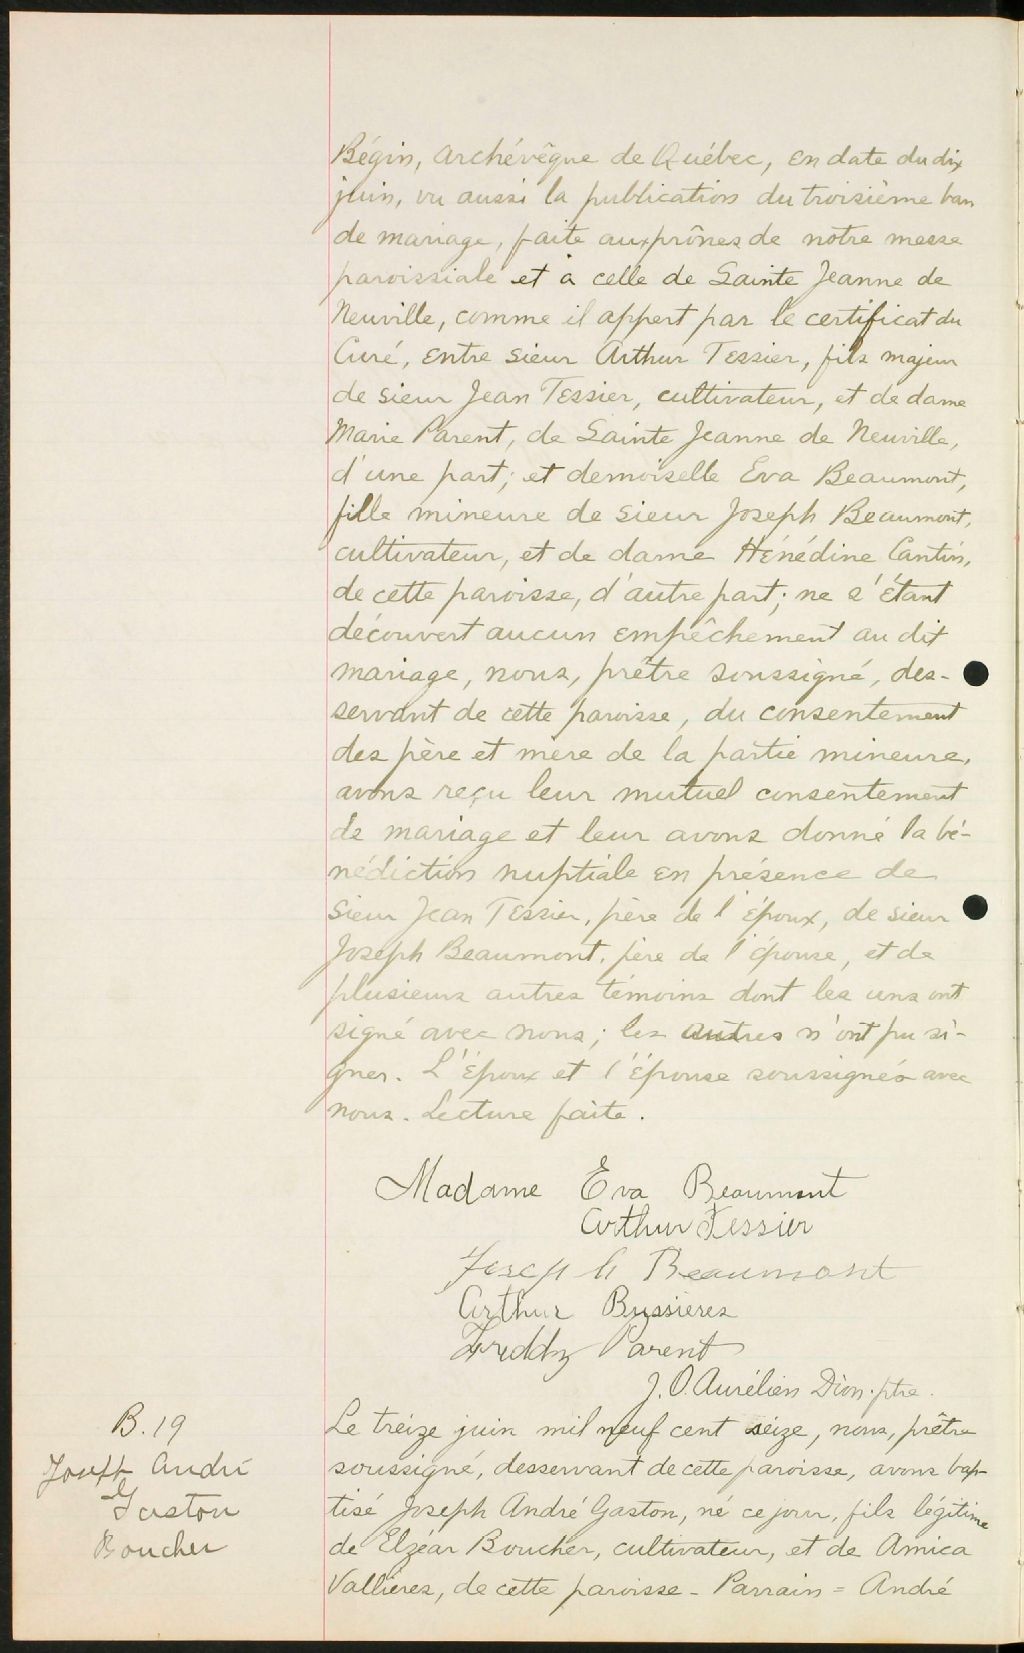 Bégin, Archévêque de Québec, en date du dix
juin, vu aussi la publication du troisième ban
de mariage, faite aux prônes de notre messe
paroissiale et à celle de Sainte Jeanne de
Neuville, comme il appert par le certificat du
Curé, entre sieur Arthur Tessier, fils majeur
de sieur Jean Tessier, cultivateur, et de dame
Marie Parent, de Sainte Jeanne de Neuville,
d'une part; et demoiselle Eva Beaumont,
fille mineure de sieur Joseph Beaumont,
cultivateur, et de dame Hénédine Cantin,
de cette paroisse, d'autre part; ne s'étant
découvert aucun empêchement au dit
mariage, nous, prêtre soussigné, des-
servant de cette paroisse, du consentement
des père et mère de la partie mineure,
avons reçu leur mutuel consentement
de mariage et leur avons donné la bé-
nédiction nuptiale en présence de
Sieur Jean Tessier, père de l'époux, de sieur
Joseph Beaumont, père de l'épouse, et de
plusieurs autres témoins dont les uns ont
signé avec nous; les autres n'ont pu si-
gner. L'Époux et l'Épouse soussignés avec
nous. Lecture faite.
Madame Eva Beaumont
Arthur Tessier
Joseph Beaumont
Arthur Bussieres
Freddy Parent
J. O. Aurélien Dion. ptre.
B. 19
Joseph André
Gaston
Boucher
Le treize juin mil neuf cent seize, nous, prêtre
soussigné, desservant de cette paroisse, avons bap-
tisé Joseph André Gaston, né ce jour, fils légitime
de Elzéar Boucher, cultivateur, et de Amica
Vallières, de cette paroisse - Parrain = André